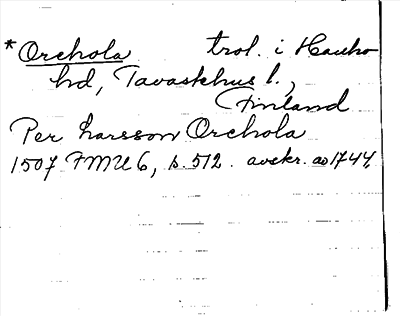 *Orchola trol. i Hauho
hd, Tavastehus l.,
Finland
Per Larsson Orchola
1507 FMU 6, s. 512. avskr. ao 1744,